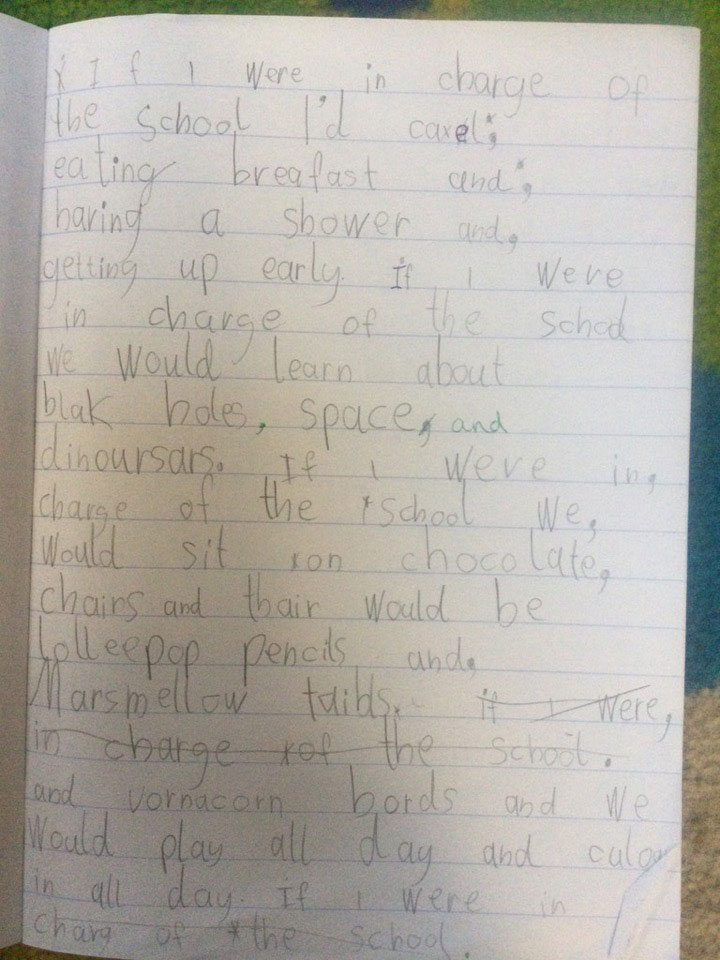 If I were in charge of
the school I'd caxel;
eating breafast and,
haring a shower and,
getting up early. If I were
in charge of the school
we would learn about
blak holes, space, and
dinoursars. If I were in,
charge of the school we,
would sit on chocolate,
chairs and thair would be
lolleepop pencils and,
Marsmellow taibls. if I were,
in charge of the school.
and vornacorn bords and we
would play all day and culor
in all day. if I were in
charg of the school.